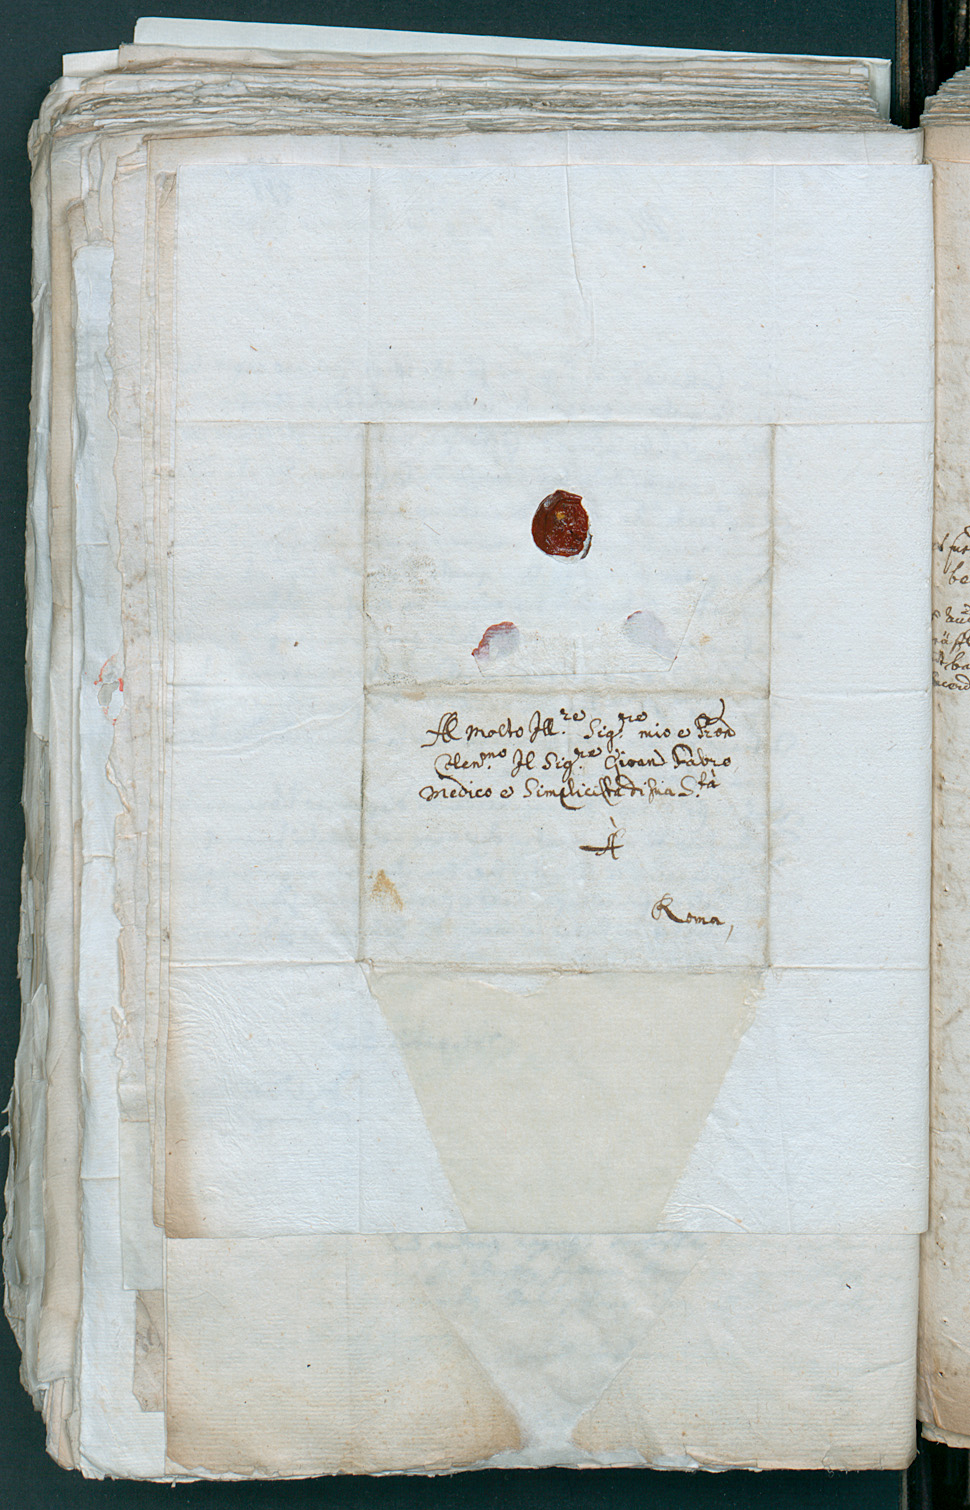 Al Molto Ill.re Sig.re mio e Pron
Olen.mo Il Sig.re Giovan Fabro
Medico e Simplicista di sua S.tà
À
Roma,